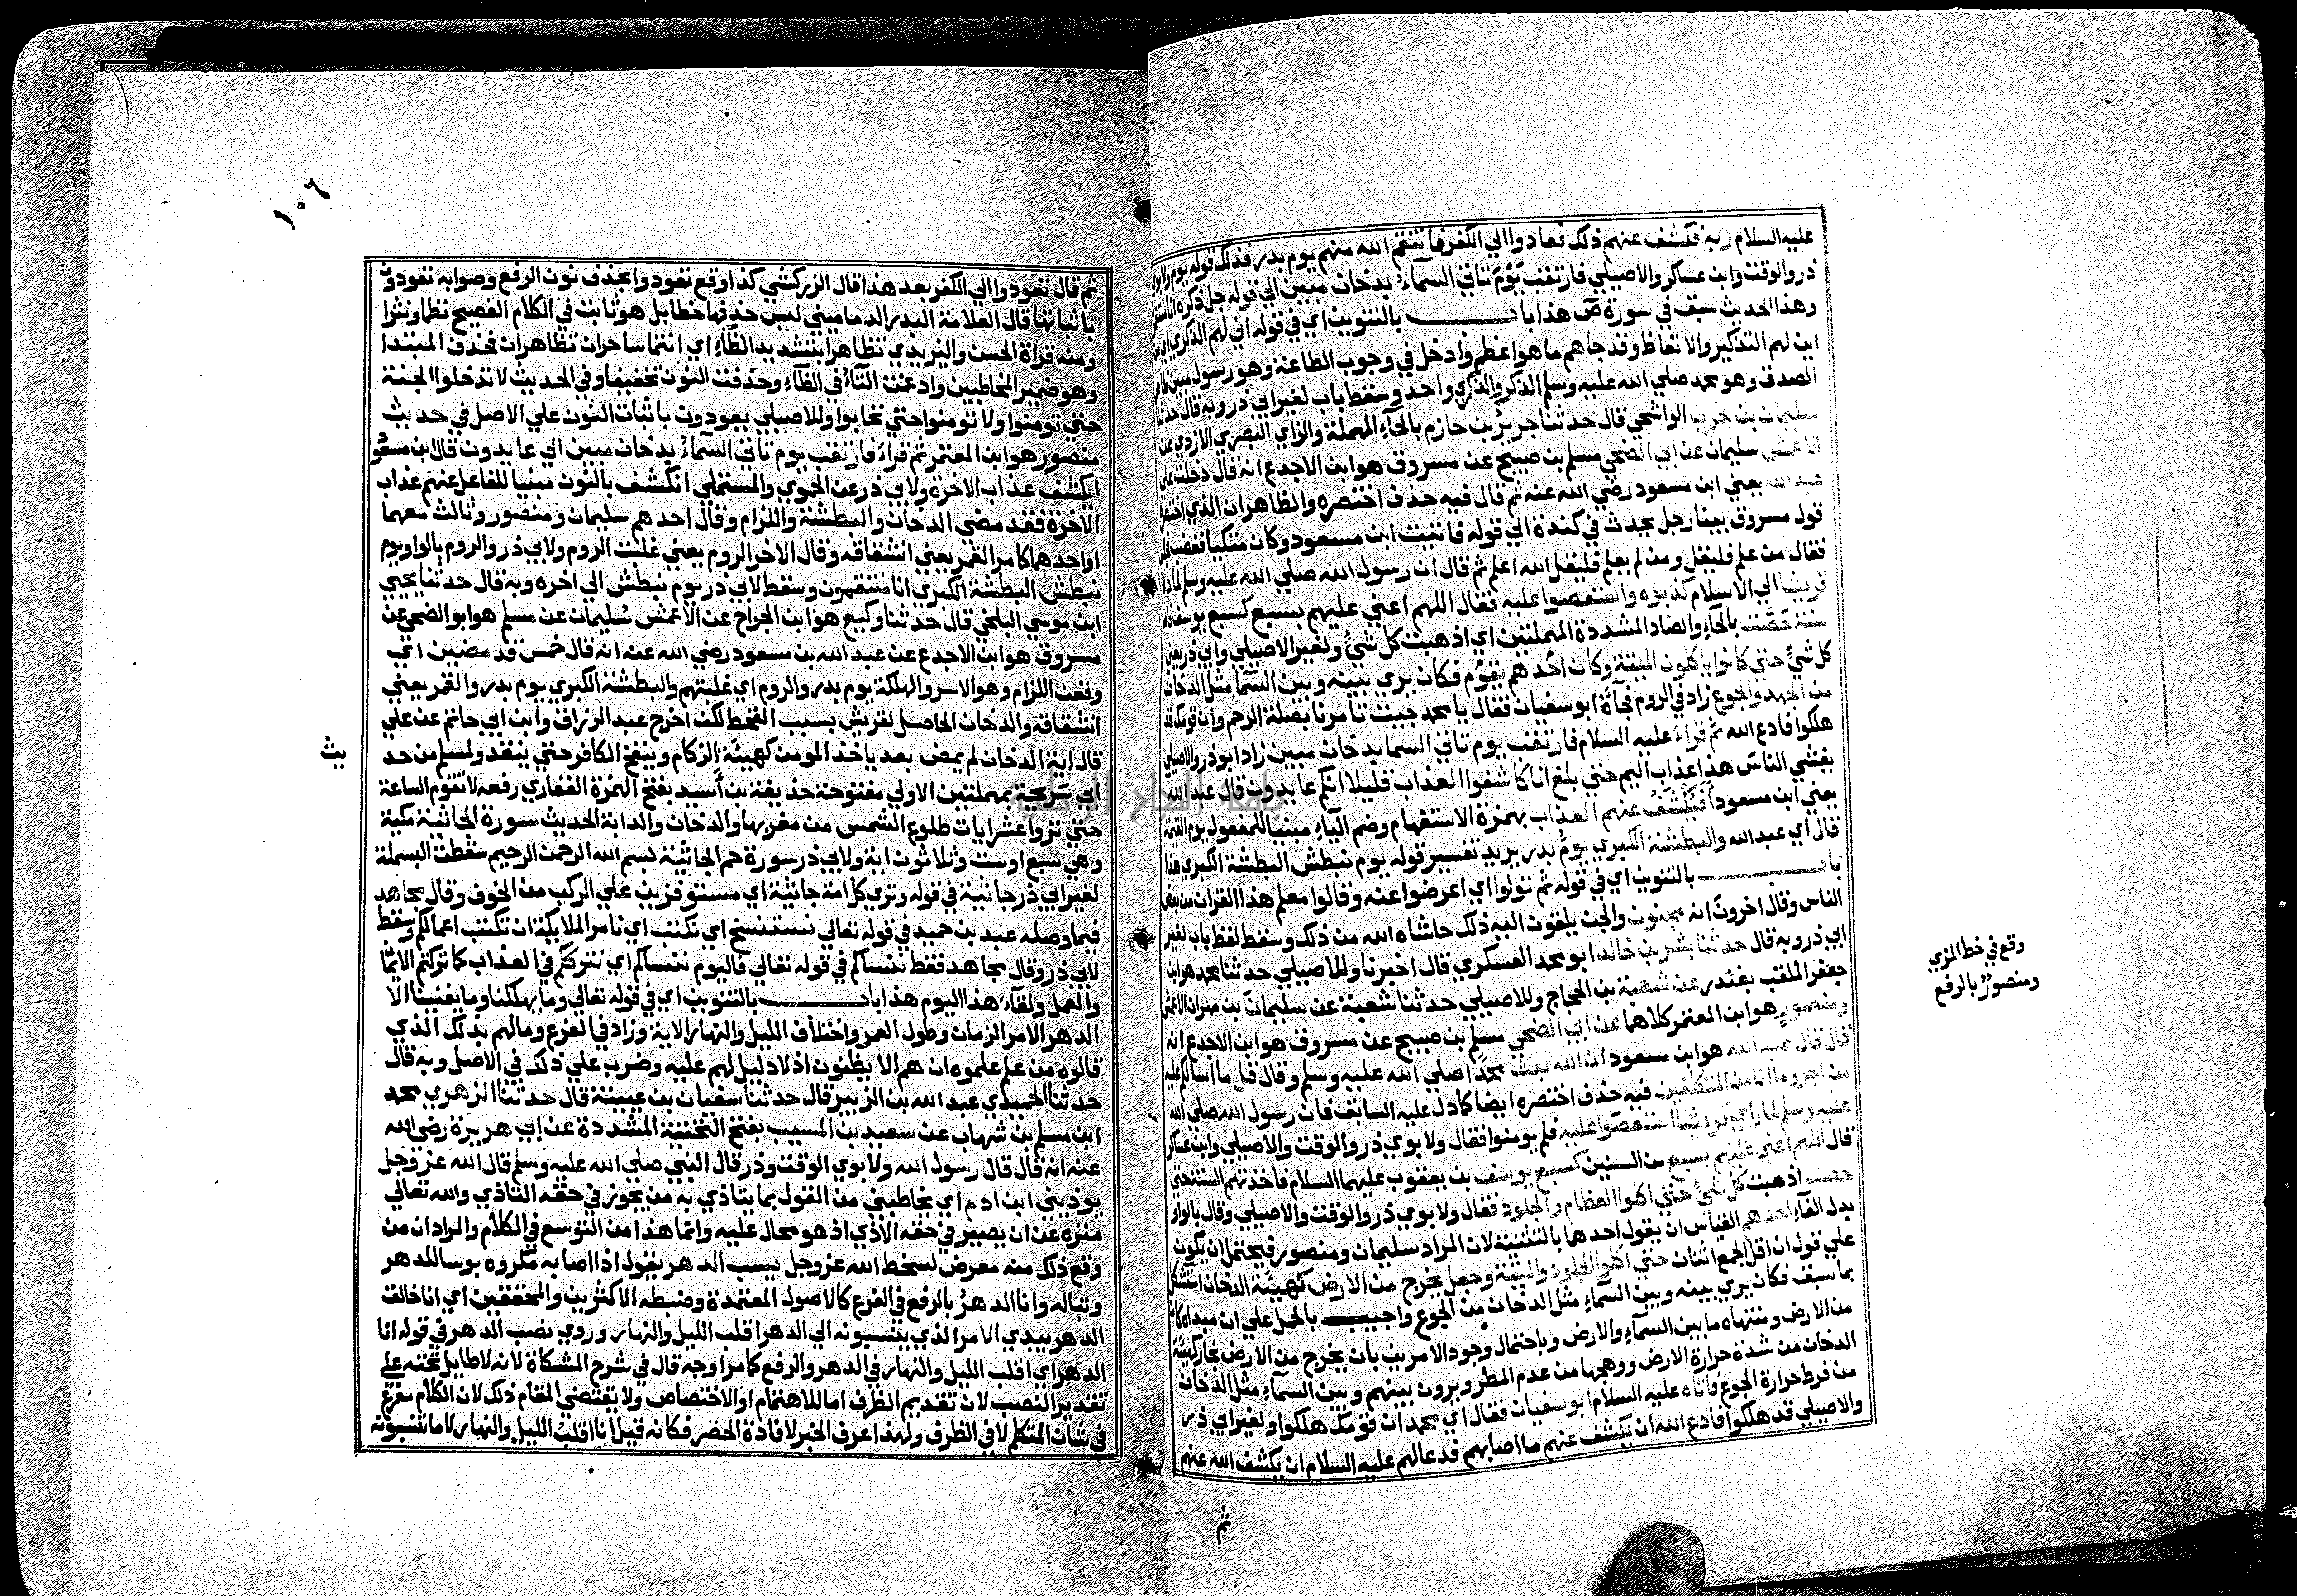 عليه السلام ربه فكشف عنهم ذلك فعادوا الي الكفر فانتقم الله منهم يوم بدر فذلك قوله يوم ولابوي
ذر والوقت وابن عساكر والاصيلي فارتقب يوم تاتي السماء بدخان مبين الي قوله جل ذكره انا منتقمون
وهذا الحديث سبق في سورة ص هذا باب بالتنوين اي في قوله اني لهم الذكري اي من
اين لهم التذكير والاتعاظ وقد جاهم ما هو اعظم وادخل في وجوب الطاعة وهو رسول مبين ظاهر
الصدق وهو محمد صلي الله عليه وسلم الذكر والذكري واحد وسقط باب لغير ابي ذر وبه قال حدثنا
سليمان بن حرب الواشحي قال حدثنا جرير بن حازم بالحاء المهملة والزاي البصري الازدي عن
الاعمش سليمان عن ابي الضحي مسلم بن صبيح عن مسروق هو ابن الاجدع انه قال دخلت علي
عبد الله يعني ابن مسعود رضي الله عنه ثم قال فيه حذف اختصره والظاهر ان الذي اختصره
قول مسروق بينا رجل يحدث في كندة الي قوله فاتيت ابن مسعود وكان متكيا فغضب فجلس
فقال من علم فليقل ومن لم يعلم فليقل الله اعلم ثم قال ان رسول الله صلي الله عليه وسلم لما دعا
قريشا الي الاسلام كذبوه واستعصوا عليه فقال اللهم اعني عليهم بسبع كسبع يوسف فاصابتهم
سنة حصت بالحاء والصاد المشددة المهملتين اي اذهبت كل شي ولغير الاصيلي وابي ذر يعني
كل شي حتي كانوا ياكلون الميتة وكان احدهم يقوم فكان يري بينه وبين السماء مثل الدخان
من الجهد والجوع زاد في الروم فجاءه ابو سفيان فقال يا محمد جيت تامرنا بصلة الرحم وان قومك قد
هلكوا فادع الله ثم قراء عليه السلام فارتقب يوم تاتي السما بدخان مبين زاد ابو ذر والاصيلي
يغشي الناس هذا عذاب اليم حتي بلغ انا كاشفوا العذاب قليلا انكم عايدون قال عبد الله
يعني ابن مسعود افيكشف عنهم العذاب بهمزة الاستفهام وضم الياء مبنيا للمفعول يوم القيمة
قال اي عبد الله والبطشة الكبري يوم بدر يريد تفسير قوله يوم نبطش البطشة الكبري هذا
باب بالتنوين اي في قوله ثم تولوا اي اعرضوا عنه وقالوا معلم هذا القران من بعض
الناس وقال اخرون انه مجنون والجن يلقون اليه ذلك حاشاه الله من ذلك وسقط لفظ باب لغير
ابي ذر وبه قال حدثنا بشر بن خالد ابو محمد العسكري قال اخبرنا وللاصيلي حدثنا محمد هو ابن
جعفر الملقب بغندر عن شعبة بن الحجاج وللاصيلي حدثنا شعبة عن سليمان بن مهران الاعمش
ومنصور هو ابن المعتمر كلاهما عن ابي الضحي مسلم بن صبيح عن مسروق هو ابن الاجدع انه
قال قال عبد الله هو ابن مسعود ان الله بعث محمدا صلي الله عليه وسلم وقال قل ما اسالكم عليه
من اجر وما انا من المتكلفين فيه حذف اختصره ايضا كما دل عليه السابق فان رسول الله صلي الله
عليه وسلم لما راي قريشا استعصوا عليه فلم يومنوا فقال ولابوي ذر والوقت والاصيلي وابن عساكر
قال اللهم اعني عليهم بسبع من السنين كسبع يوسف بن يعقوب عليهما السلام فاخذتهم السنة حتي
حصت اذهبت كل شي حتي اكلوا العظام والجلود فقال ولابوي ذر والوقت والاصيلي وقال بالواو
بدل الفاء احدهم القياس ان يقول احدهما بالتثنية لان المراد سليمان ومنصور فيحتمل ان يكون
علي قول ان اقل الجمع اثنان حتي اكلوا الجلود والميتة وجعل يخرج من الارض كهيئة الدخان استشكل
بما سبق فكان يري بينه وبين السماء مثل الدخان من الجوع واجيب بالحمل علي ان مبداه كان
من الارض ومنتهاه ما بين السماء والارض وباحتمال وجود الامرين بان يخرج من الارض بخار كهيئة
الدخان من شدة حرارة الارض ووهجها من عدم المطر ويرون بينهم وبين السماء مثل الدخان
من فرط حرارة الجوع فاتاه عليه السلام ابو سفيان فقال اي محمد ان قومك هلكوا ولغير ابي ذر
والاصيلي قد هلكوا فادع الله ان يكشف عنهم ما اصابهم فدعا لهم عليه السلام ان يكشف الله عنهم
ثم
وقع في خط المزي
ومنصور بالرفع
١٠٦
ثم قال تعودوا الي الكفر بعد هذا قال الزركشي كذا وقع تعودوا بحذف نون الرفع وصوابه تعودون
باثباتها قال العلامة البدر الدماميني ليس حذفها خطا بل هو ثابت في الكلام الفصيح نظما ونثرا
ومنه قراة الحسن واليزيدي تظاهرا بتشديد الظاء اي انتما ساحران تظاهران فحذف المبتدا
وهو ضمير المخاطبين وادغمت التاء في الظاء وحذفت النون تخفيفا وفي الحديث لا تدخلوا الجنة
حتي تومنوا ولا تومنوا حتي تحابوا وللاصيلي يعودون باثبات النون علي الاصل في حديث
منصور هو ابن المعتمر ثم قراء فارتقب يوم تاتي السماء بدخان مبين الي عايدون قال ابن مسعود
ايكشف عذاب الاخرة ولابي ذر عن الحموي والمستملي انكشف بالنون مبنيا للفاعل عنهم عذاب
الاخرة فقد مضي الدخان والبطشة واللزام وقال احدهم سليمان ومنصور وثالث معهما
او احدهما كما مر القمر يعني انشقاقه وقال الاخر الروم يعني غلبت الروم ولابي ذر والروم بالواو يوم
نبطش البطشة الكبري انا منتقمون وسقط لابي ذر يوم نبطش الي اخره وبه قال حدثنا يحيي
ابن موسي البلخي قال حدثنا وكيع هو ابن الجراح عن الاعمش سليمان عن مسلم هو ابو الضحي عن
مسروق هو ابن الاجدع عن عبد الله بن مسعود رضي الله عنه انه قال خمس قد مضين اي
وقعت اللزام وهو الاسر والهلكة يوم بدر والروم اي غلبتهم والبطشة الكبري يوم بدر والقمر يعني
انشقاقه والدخان الحاصل لقريش بسبب القحط لكن اخرج عبد الرزاق وابن ابي حاتم عن علي
قال اية الدخان لم يمض بعد ياخذ المومن كهيئة الزكام وينفخ الكافر حتي ينفد ولمسلم من حد
يث
ابي سريحة بمهملتين الاولي مفتوحة حذيفة بن أسيد بفتح الهمزة الغفاري رفعه لا تقوم الساعة
حتي تروا عشر ايات طلوع الشمس من مغربها والدخان والدابة الحديث سورة الجاثية مكية
وهي سبع او ست وثلاثون اية ولابي ذر سورة حم الجاثية بسم الله الرحمن الرحيم سقطت البسملة
لغير ابي ذر جاثية في قوله وتري كل امة جاثية اي مستوفزين علي الركب من الخوف وقال مجاهد
فيما وصله عبد بن حميد في قوله تعالي نستنسخ اي نكتب اي نامر الملايكة ان تكتب اعمالكم وسقط
لابي ذر وقال مجاهد فقط ننساكم في قوله تعالي فاليوم ننساكم اي نترككم في العذاب كما تركتم الايمان
والعمل ولقاء هذا اليوم هذا باب بالتنوين اي في قوله تعالي وما يهلكنا وما يفنينا الا
الدهر الا مر الزمان وطول العمر واختلاف الليل والنهار الاية وزاد في الفرع وما لهم بذلك الذي
قالوه من علم علموه ان هم الا يظنون اذ لا دليل لهم عليه وضرب علي ذلك في الاصل وبه قال
حدثنا الحميدي عبد الله بن الزبير قال حدثنا سفيان بن عيينة قال حدثنا الزهري محمد
ابن مسلم بن شهاب عن سعيد بن المسيب بفتح التحتية المشددة عن ابي هريرة رضي الله
عنه انه قال قال رسول الله ولابوي الوقت وذر قال النبي صلي الله عليه وسلم قال الله عز وجل
يوذيني ابن ادم اي يخاطبني من القول بما يتاذي به من يجوز في حقه التاذي والله تعالي
منزه عن ان يصير في حقه الاذي اذ هو محال عليه وانما هذا من التوسع في الكلام والمراد ان من
وقع ذلك منه معرض لسخط الله عز وجل يسب الدهر يقول اذا اصابه مكروه بوسا للدهر
وتبا له وانا الدهر بالرفع في الفرع كالاصول المعتمدة وضبطه الاكثرين والمحققين اي انا خالق
الدهر بيدي الامر الذي ينسبونه الي الدهر اقلب الليل والنهار وروي نصب الدهر في قوله انا
الدهر اي اقلب الليل والنهار في الدهر والرفع كما مر اوجه قال في شرح المشكاة لانه لا طايل تحته علي
تقدير النصب لان تقديم الظرف اما للاهتمام او الاختصاص ولا يقتضي المقام ذلك لان الكلام مفرغ
في شان المتكلم لا في الظرف ولهذا عرف الخبر لافادة الحصر فكانه قيل انا اقلب الليل والنهار لا ما تنسبونه